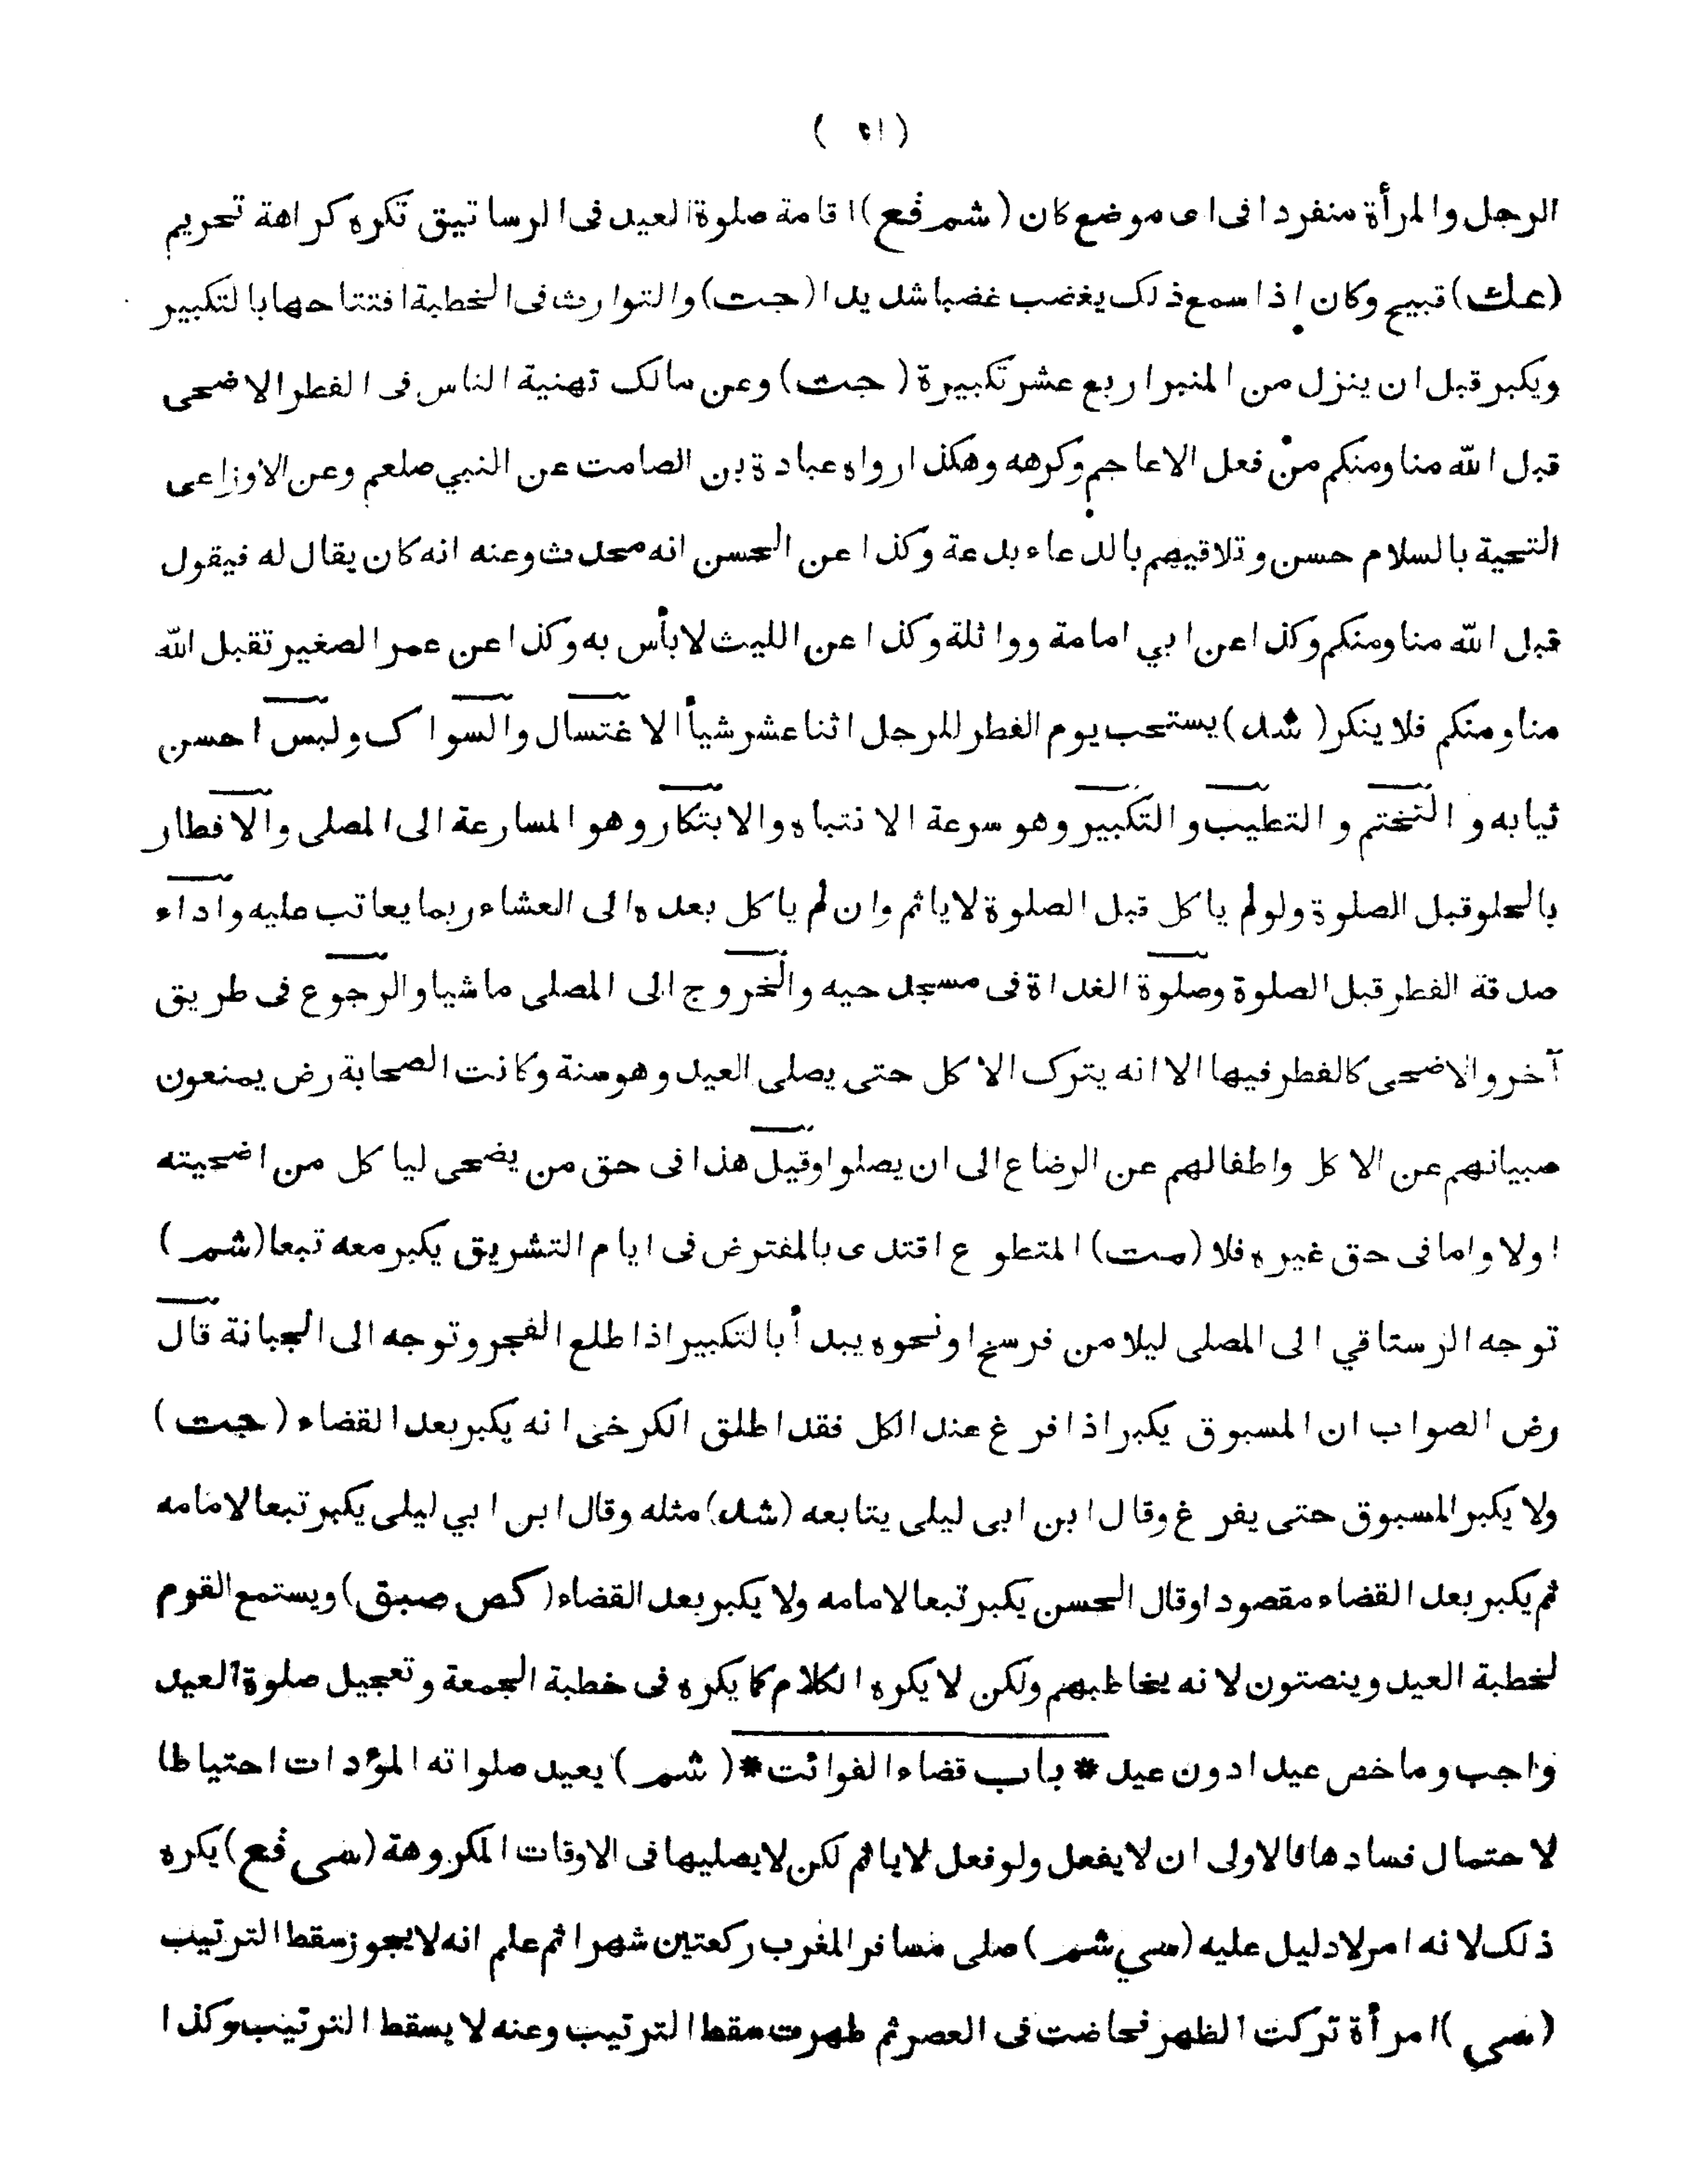 ( ٥١ )
الرجل والمرأة منفردا فى اى موضع كان (شم فع) اقامة صلوة العيد فى الرساتيق تكره كراهة تحريم
(عك) قبيح وكان اذا سمع ذلك يغضب غضبا شديدا (جت) والتوارث فى الخطبة افتتاحها بالتكبير
ويكبر قبل ان ينزل من المنبر اربع عشر تكبيرة (جت) وعن مالك تهنية الناس فى الفطر الاضحى
قبل الله منا ومنكم من فعل الاعاجم وكرهه وهكذا رواه عبادة بن الصامت عن النبي صلعم وعن الاوزاعى
التحية بالسلام حسن وتلاقيهم بالدعاء بدعة وكذا عن الحسن انه محدث وعنه انه كان يقال له فيقول
قبل الله منا ومنكم وكذا عن ابي امامة وواثلة وكذا عن الليث لا بأس به وكذا عن عمر الصغير تقبل الله
منا ومنكم فلا ينكر (شد) يستحب يوم الفطر للرجل اثنا عشر شيأ الاغتسال والسواك ولبس احسن
ثيابه و التختم و التطيب و التكبير وهو سرعة الانتباه والابتكار وهو المسارعة الى المصلى والافطار
بالحلو قبل الصلوة ولو لم ياكل قبل الصلوة لا ياثم وان لم ياكل بعده الى العشاء ربما يعاتب عليه واداء
صدقة الفطر قبل الصلوة وصلوة الغداة فى مسجد حيه والخروج الى المصلى ماشيا والرجوع فى طريق
آخر والاضحى كالفطر فيها الا انه يترك الاكل حتى يصلى العيد وهو سنة وكانت الصحابة رض يمنعون
صبيانهم عن الاكل واطفالهم عن الرضاع الى ان يصلوا وقيل هذا فى حق من يضحى لياكل من اضحيته
اولا واما فى حق غيره فلا (مت) المتطوع اقتدى بالمفترض فى ايام التشريق يكبر معه تبعا (شم)
توجه الرستاقي الى المصلى ليلا من فرسخ او نحوه يبدأ بالتكبير اذا طلع الفجر وتوجه الى الجبانة قال
رض الصواب ان المسبوق يكبر اذا فرغ عند الكل فقد اطلق الكرخى انه يكبر بعد القضاء (جت)
ولا يكبر المسبوق حتى يفرغ وقال ابن ابى ليلى يتابعه (شد) مثله وقال ابن ابي ليلى يكبر تبعا لامامه
ثم يكبر بعد القضاء مقصودا وقال الحسن يكبر تبعا لامامه ولا يكبر بعد القضاء (كص صبق) ويستمع القوم
لخطبة العيد وينصتون لانه يخاطبهم ولكن لا يكره الكلام كما يكره فى خطبة الجمعة وتعجيل صلوة العيد
واجب وما خص عيدا دون عيد * باب قضاء الفوائت * (شم) يعيد صلواته المؤدات احتياطا
لاحتمال فسادها فالاولى ان لا يفعل ولو فعل لا ياثم لكن لا يصليها فى الاوقات المكروهة (سى فع) يكره
ذلك لانه امر لا دليل عليه (سي شم) صلى مسافر المغرب ركعتين شهرا ثم علم انه لا يجوز سقط الترتيب
(سي) امرأة تركت الظهر فحاضت فى العصر ثم طهرت سقط الترتيب وعنه لا يسقط الترتيب وكذا